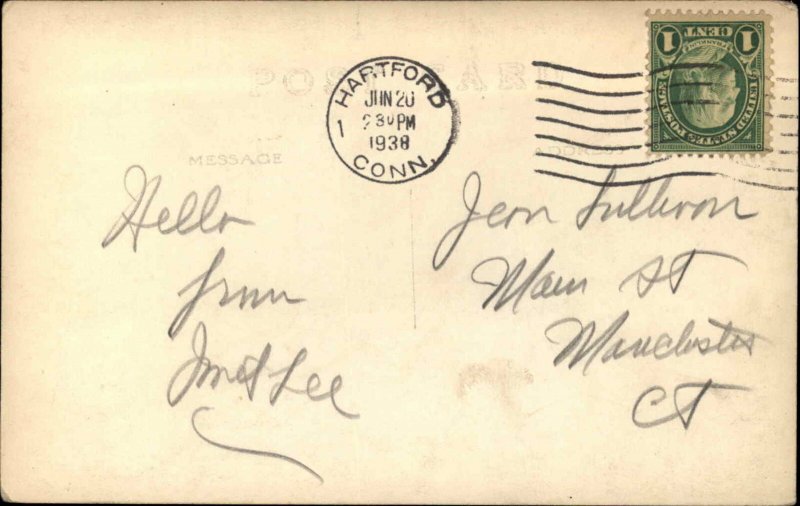 POST CARD
HARTFORD
JUN 20
2 30 PM
1938
1
CONN.
1 CENT 1
FRANKLIN
UNITED STATES POSTAGE
MESSAGE
ADDRESS
Hello
from
Lee
Jean Sullivan
Main St
Manchester
CT